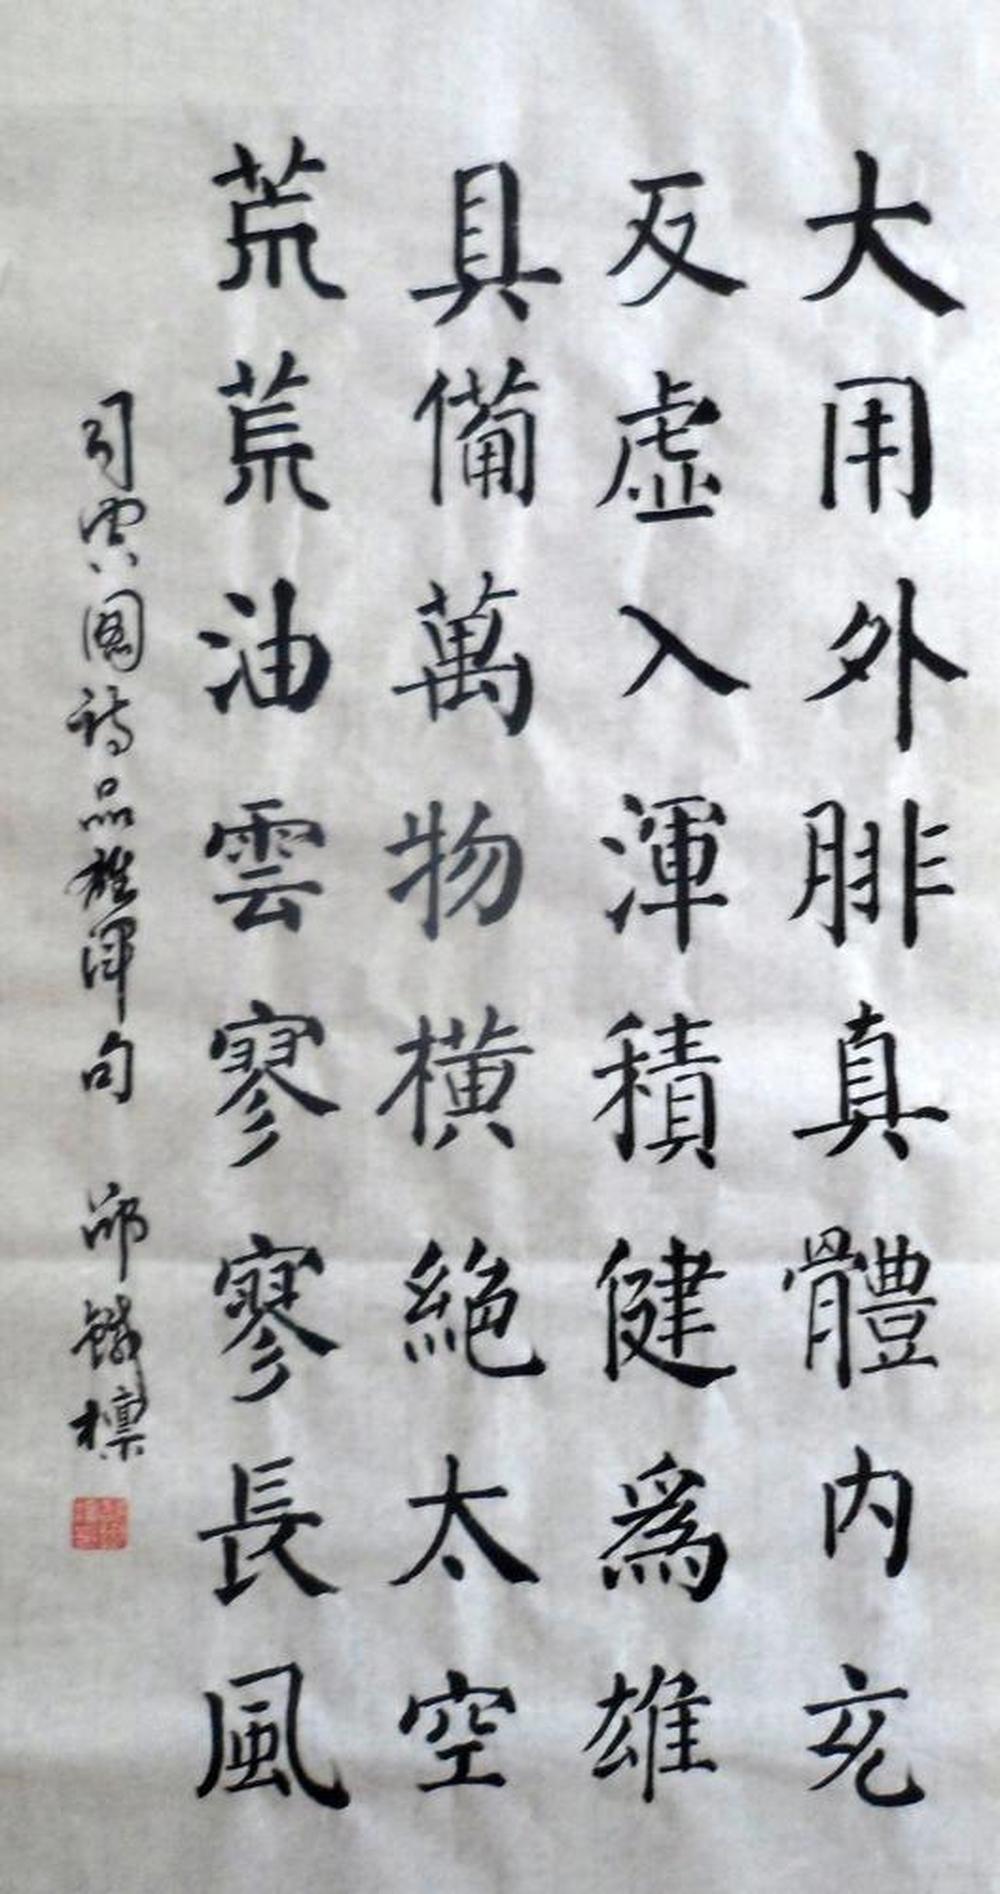 大用外腓真體内充
反虛入渾積健為雄
具備萬物橫絕太空
荒荒油雲寥寥長風
司空圖詩品雄渾句 邱